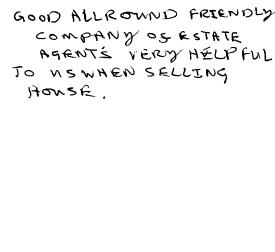 GOOD ALLROUND FRIENDLY
COMPANY OF ESTATE
AGENT'S VERY HELPFUL
TO US WHEN SELLING
HOUSE.